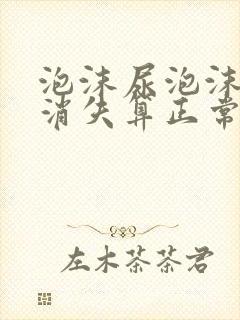 泡沫尿泡沫
消失算正常
左木茶茶君